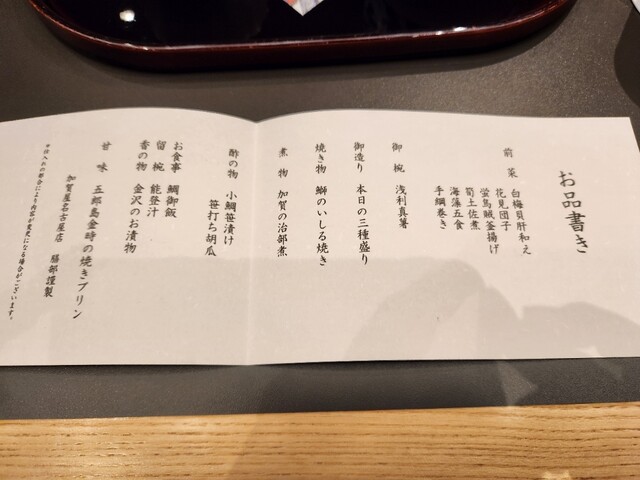 お品書き
前菜 白梅貝肝和え
花見団子
蛍烏賊釜揚げ
筍土佐煮
海藻五食
手綱巻き
御椀 浅利真薯
御造り 本日の三種盛り
焼き物 鰤のいしる焼き
煮物 加賀の治部煮
酢の物 小鯛笹漬け
笹打ち胡瓜
お食事 鯛御飯
留椀 能登汁
香の物 金沢のお漬物
甘味 五郎島金時の焼きプリン
加賀屋名古屋店 膳部謹製
※仕入れの都合により内容が変更になる場合がございます。